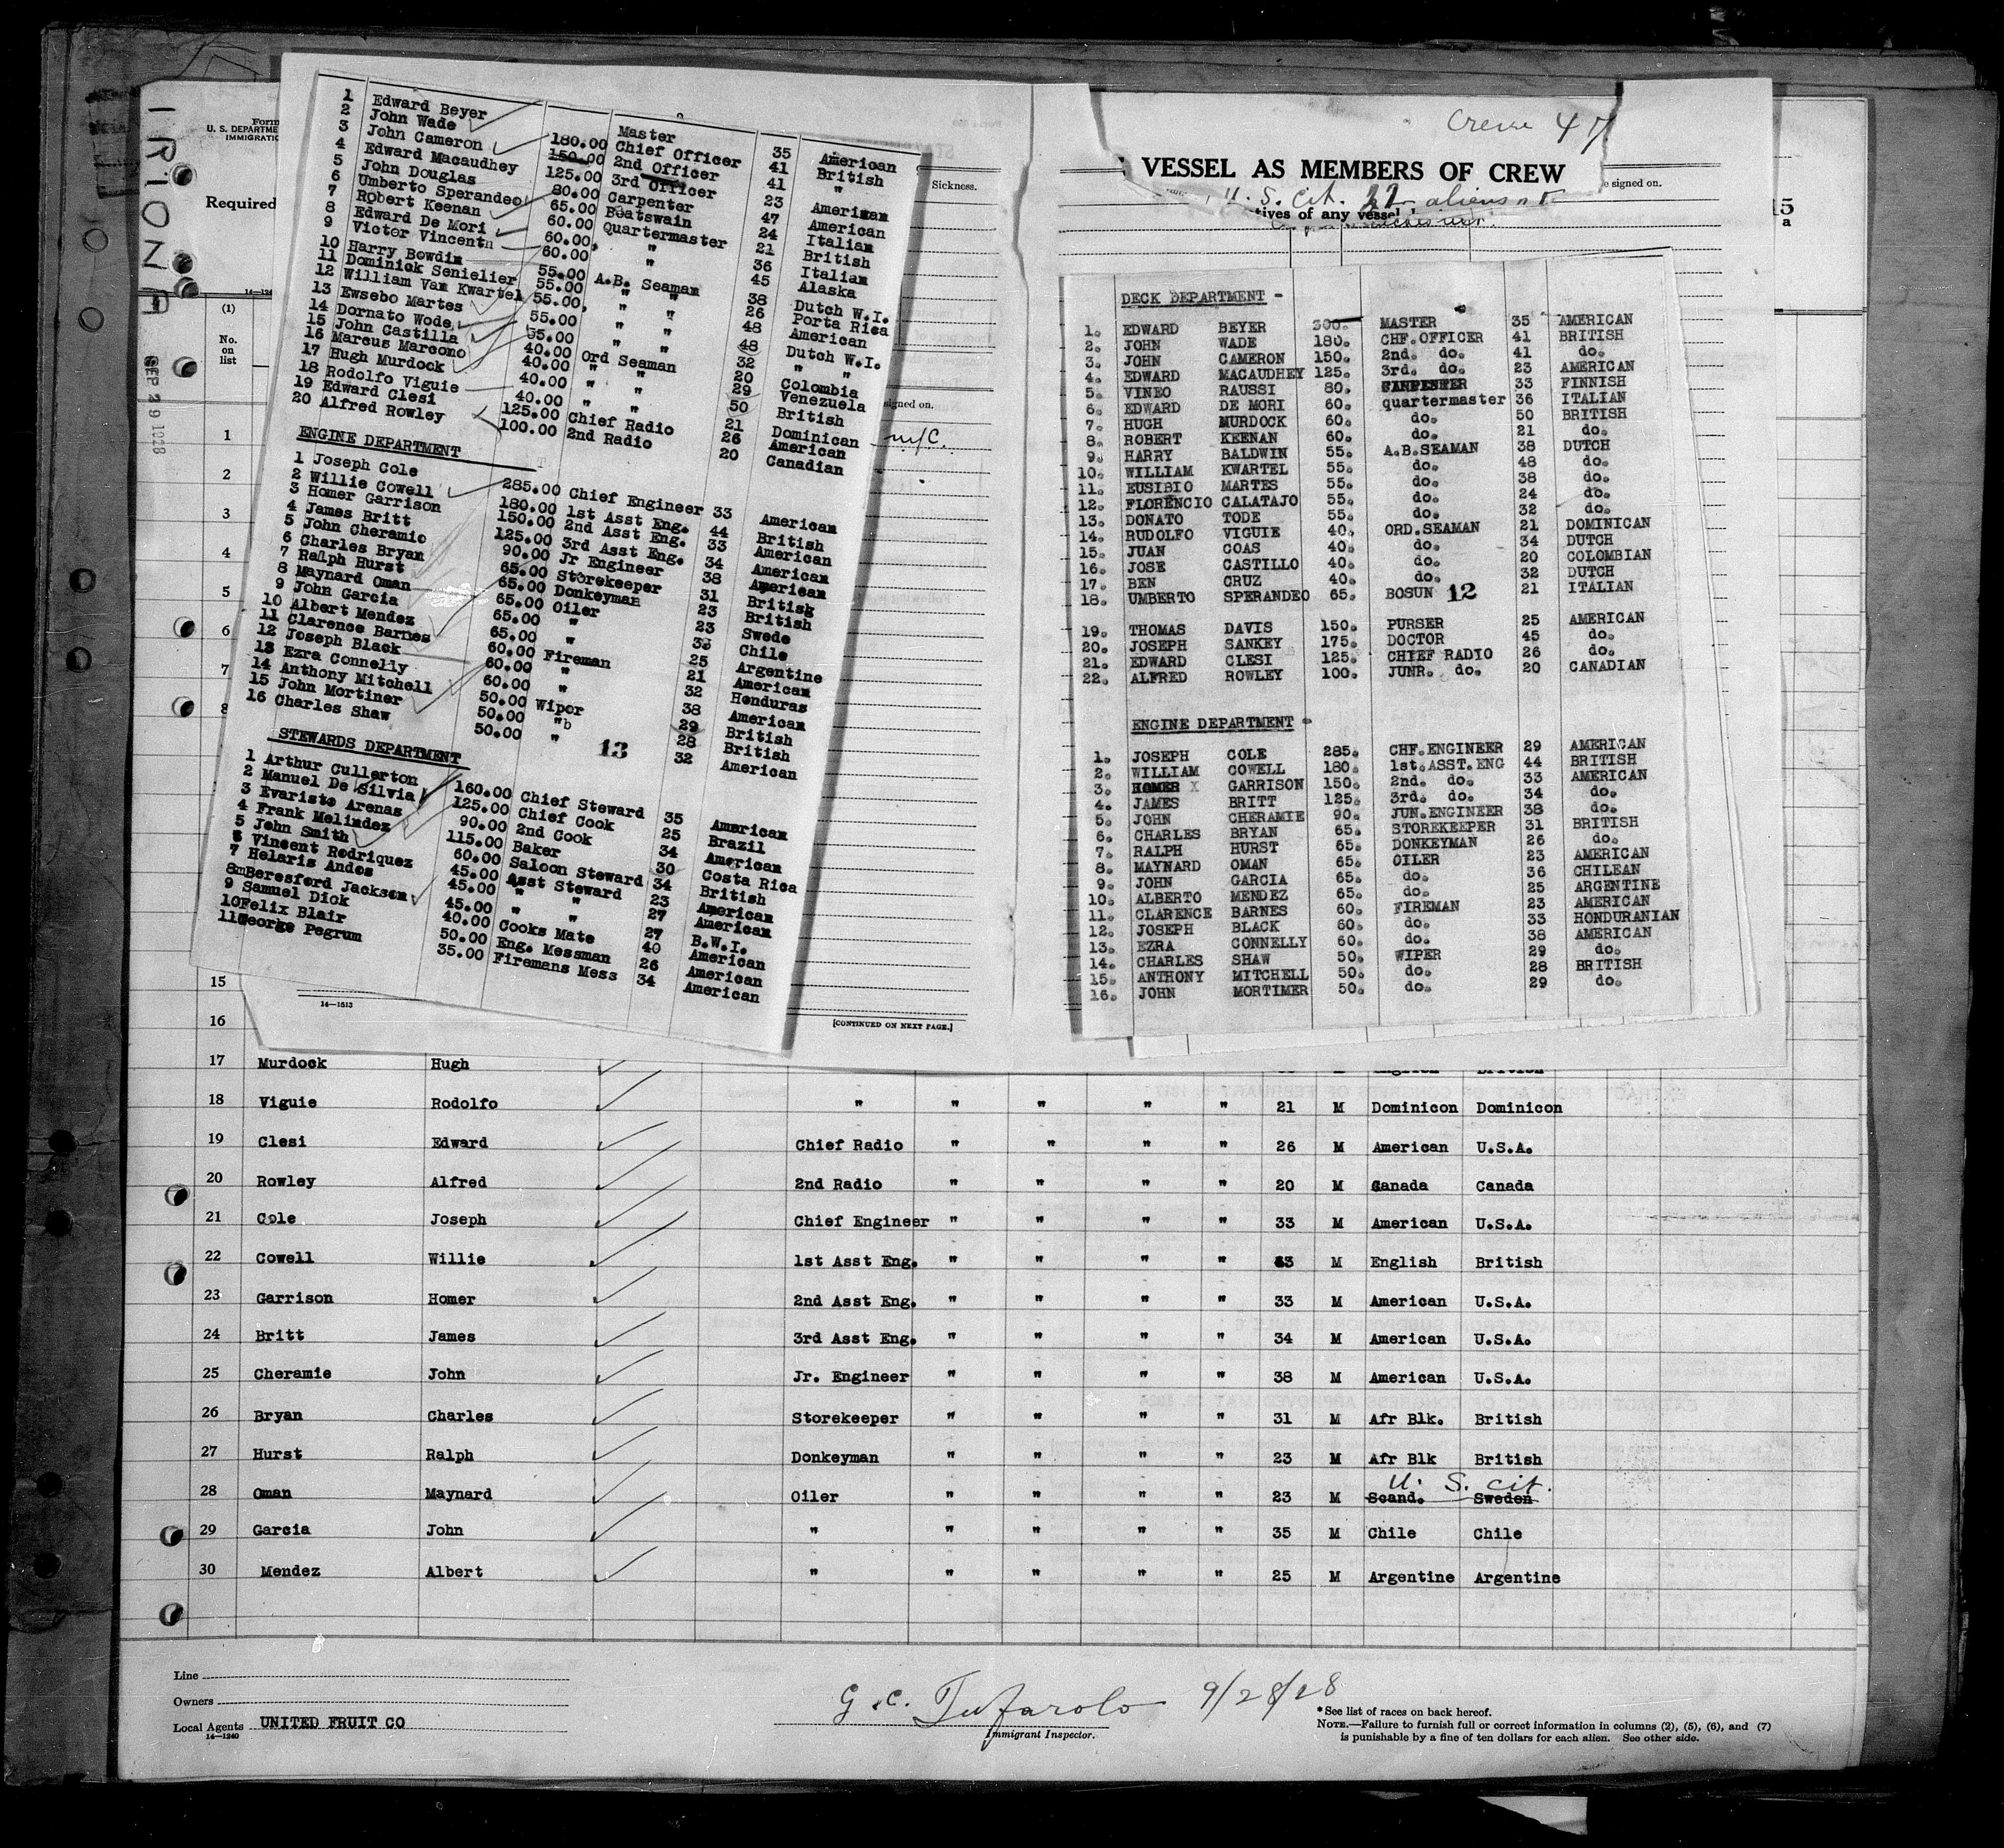 IRIONA
SEP 29 1928
Form
U. S. DEPARTME
IMMIGRATIO
Required
14—124
(1)
No. on list
Sickness.
signed on.
m/c.
1 Edward Beyer Master 35 American
2 John Wade 180.00 Chief Officer 41 British
3 John Cameron 150.00 2nd Officer 41 "
4 Edward Macaudhey 125.00 3rd Officer 23 American
5 John Douglas 80.00 Carpenter 47 American
6 Umberto Sperandeo 65.00 Boatswain 24 Italian
7 Robert Keenan 60.00 Quartermaster 21 British
8 Edward De Mori 60.00 " 36 Italian
9 Victor Vincenth 60.00 " 45 Alaska
10 Harry Bowdin 55.00 A.B. Seaman 38 Dutch W.I.
11 Dominick Senielier 55.00 " " 26 Porta Rica
12 William Van Kwartel 55.00 " " 48 American
13 Ewsebo Martes 55.00 " " 48 Dutch W.I.
14 Dornato Wode 55.00 " " 32 " "
15 John Castilla 40.00 Ord Seaman 20 Colombia
16 Marcus Marcono 40.00 " " 29 Venezuela
17 Hugh Murdock 40.00 " " 50 British
18 Rodolfo Viguie 40.00 " " 21 Dominican
19 Edward Clesi 125.00 Chief Radio 26 American
20 Alfred Rowley 100.00 2nd Radio 20 Canadian
ENGINE DEPARTMENT
1 Joseph Cole 285.00 Chief Engineer 33 American
2 Willie Cowell 180.00 1st Asst Eng. 44 British
3 Homer Garrison 150.00 2nd Asst Eng. 33 American
4 James Britt 125.00 3rd Asst Eng. 34 American
5 John Cheramie 90.00 Jr Engineer 38 American
6 Charles Bryan 65.00 Storekeeper 31 British
7 Ralph Hurst 65.00 Donkeyman 23 British
8 Maynard Oman 65.00 Oiler 23 Swede
9 John Garcia 65.00 " Chile
10 Albert Mendez 65.00 " 25 Argentine
11 Clarence Barnes 60.00 Fireman 21 American
12 Joseph Black 60.00 " 32 Honduras
13 Ezra Connelly 60.00 " 38 American
14 Anthony Mitchell 50.00 Wiper 29 British
15 John Mortiner 50.00 "b 28 British
16 Charles Shaw 50.00 " 32 American
13
STEWARDS DEPARTMENT
1 Arthur Cullerton 160.00 Chief Steward 35 American
2 Manuel De Silvia 125.00 Chief Cook 25 Brazil
3 Evaristo Arenas 90.00 2nd Cook 34 American
4 Frank Melindez 115.00 Baker 30 Costa Rica
5 John Smith 60.00 Saloon Steward 34 British
6 Vincent Rodriquez 45.00 Asst Steward 23 American
7 Helaris Andos 45.00 " " 27 American
8mBeresford Jackson 45.00 " " 27 B.W.I.
9 Samuel Dick 40.00 Cooks Mate 40 American
10Felix Blair 50.00 Eng. Messman 26 American
11George Pegrum 35.00 Firemans Mess 34 American
14—1513
[CONTINUED ON NEXT PAGE.]
Crew 47
VESSEL AS MEMBERS OF CREW
U. S. cit. 22 aliens
tives of any vessel
e signed on.
15
a
DECK DEPARTMENT -
1. EDWARD BEYER 300. MASTER 35 AMERICAN
2. JOHN WADE 180. CHF.OFFICER 41 BRITISH
3. JOHN CAMERON 150. 2nd. do. 41 do.
4. EDWARD MACAUDHEY 125. 3rd. do. 23 AMERICAN
5. VINEO RAUSSI 80. CARPENTER 33 FINNISH
6. EDWARD DE MORI 60. quartermaster 36 ITALIAN
7. HUGH MURDOCK 60. do. 50 BRITISH
8. ROBERT KEENAN 60. do. 21 do.
9. HARRY BALDWIN 55. A.B.SEAMAN 38 DUTCH
10. WILLIAM KWARTEL 55. do. 48 do.
11. EUSIBIO MARTES 55. do. 38 do.
12. FLORENCIO CALATAJO 55. do. 24 do.
13. DONATO TODE 55. do. 32 do.
14. RUDOLFO VIGUIE 40. ORD.SEAMAN 21 DOMINICAN
15. JUAN COAS 40. do. 34 DUTCH
16. JOSE CASTILLO 40. do. 20 COLOMBIAN
17. BEN CRUZ 40. do. 32 DUTCH
18. UMBERTO SPERANDEO 65. BOSUN 12 21 ITALIAN
19. THOMAS DAVIS 150. PURSER 25 AMERICAN
20. JOSEPH SANKEY 175. DOCTOR 45 do.
21. EDWARD CLESI 125. CHIEF RADIO 26 do.
22. ALFRED ROWLEY 100. JUNR. do. 20 CANADIAN
ENGINE DEPARTMENT -
1. JOSEPH COLE 285. CHF.ENGINEER 29 AMERICAN
2. WILLIAM COWELL 180. 1st.ASST.ENG 44 BRITISH
3. HOMER X GARRISON 150. 2nd. do. 33 AMERICAN
4. JAMES BRITT 125. 3rd. do. 34 do.
5. JOHN CHERAMIE 90. JUN.ENGINEER 38 do.
6. CHARLES BRYAN 65. STOREKEEPER 31 BRITISH
7. RALPH HURST 65. DONKEYMAN 26 do.
8. MAYNARD OMAN 65. OILER 23 AMERICAN
9. JOHN GARCIA 65. do. 36 CHILEAN
10. ALBERTO MENDEZ 65. do. 25 ARGENTINE
11. CLARENCE BARNES 60. FIREMAN 23 AMERICAN
12. JOSEPH BLACK 60. do. 33 HONDURANIAN
13. EZRA CONNELLY 60. do. 38 AMERICAN
14. CHARLES SHAW 50. WIPER 29 do.
15. ANTHONY MITCHELL 50. do. 28 BRITISH
16. JOHN MORTIMER 50. do. 29 do.
1
2
3
4
5
6
7
8
15
16
17 Murdock Hugh
18 Viguie Rodolfo " " " " " 21 M Dominicon Dominicon
19 Clesi Edward Chief Radio " " " " 26 M American U.S.A.
20 Rowley Alfred 2nd Radio " " " " 20 M Canada Canada
21 Cole Joseph Chief Engineer " " " " 33 M American U.S.A.
22 Cowell Willie 1st Asst Eng. " " " " M English British
23 Garrison Homer 2nd Asst Eng. " " " " 33 M American U.S.A.
24 Britt James 3rd Asst Eng. " " " " 34 M American U.S.A.
25 Cheramie John Jr. Engineer " " " " 38 M American U.S.A.
26 Bryan Charles Storekeeper " " " " 31 M Afr Blk. British
27 Hurst Ralph Donkeyman " " " " 23 M Afr Blk British
U. S. cit.
28 Oman Maynard Oiler " " " " 23 M Scand. Sweden
29 Garcia John " " " " " 35 M Chile Chile
30 Mendez Albert " " " " " 25 M Argentine Argentine
Line
Owners
Local Agents UNITED FRUIT CO
14—1240
G. C. Tufarolo 9/28/28
Immigrant Inspector.
*See list of races on back hereof.
NOTE.—Failure to furnish full or correct information in columns (2), (5), (6), and (7)
is punishable by a fine of ten dollars for each alien. See other side.